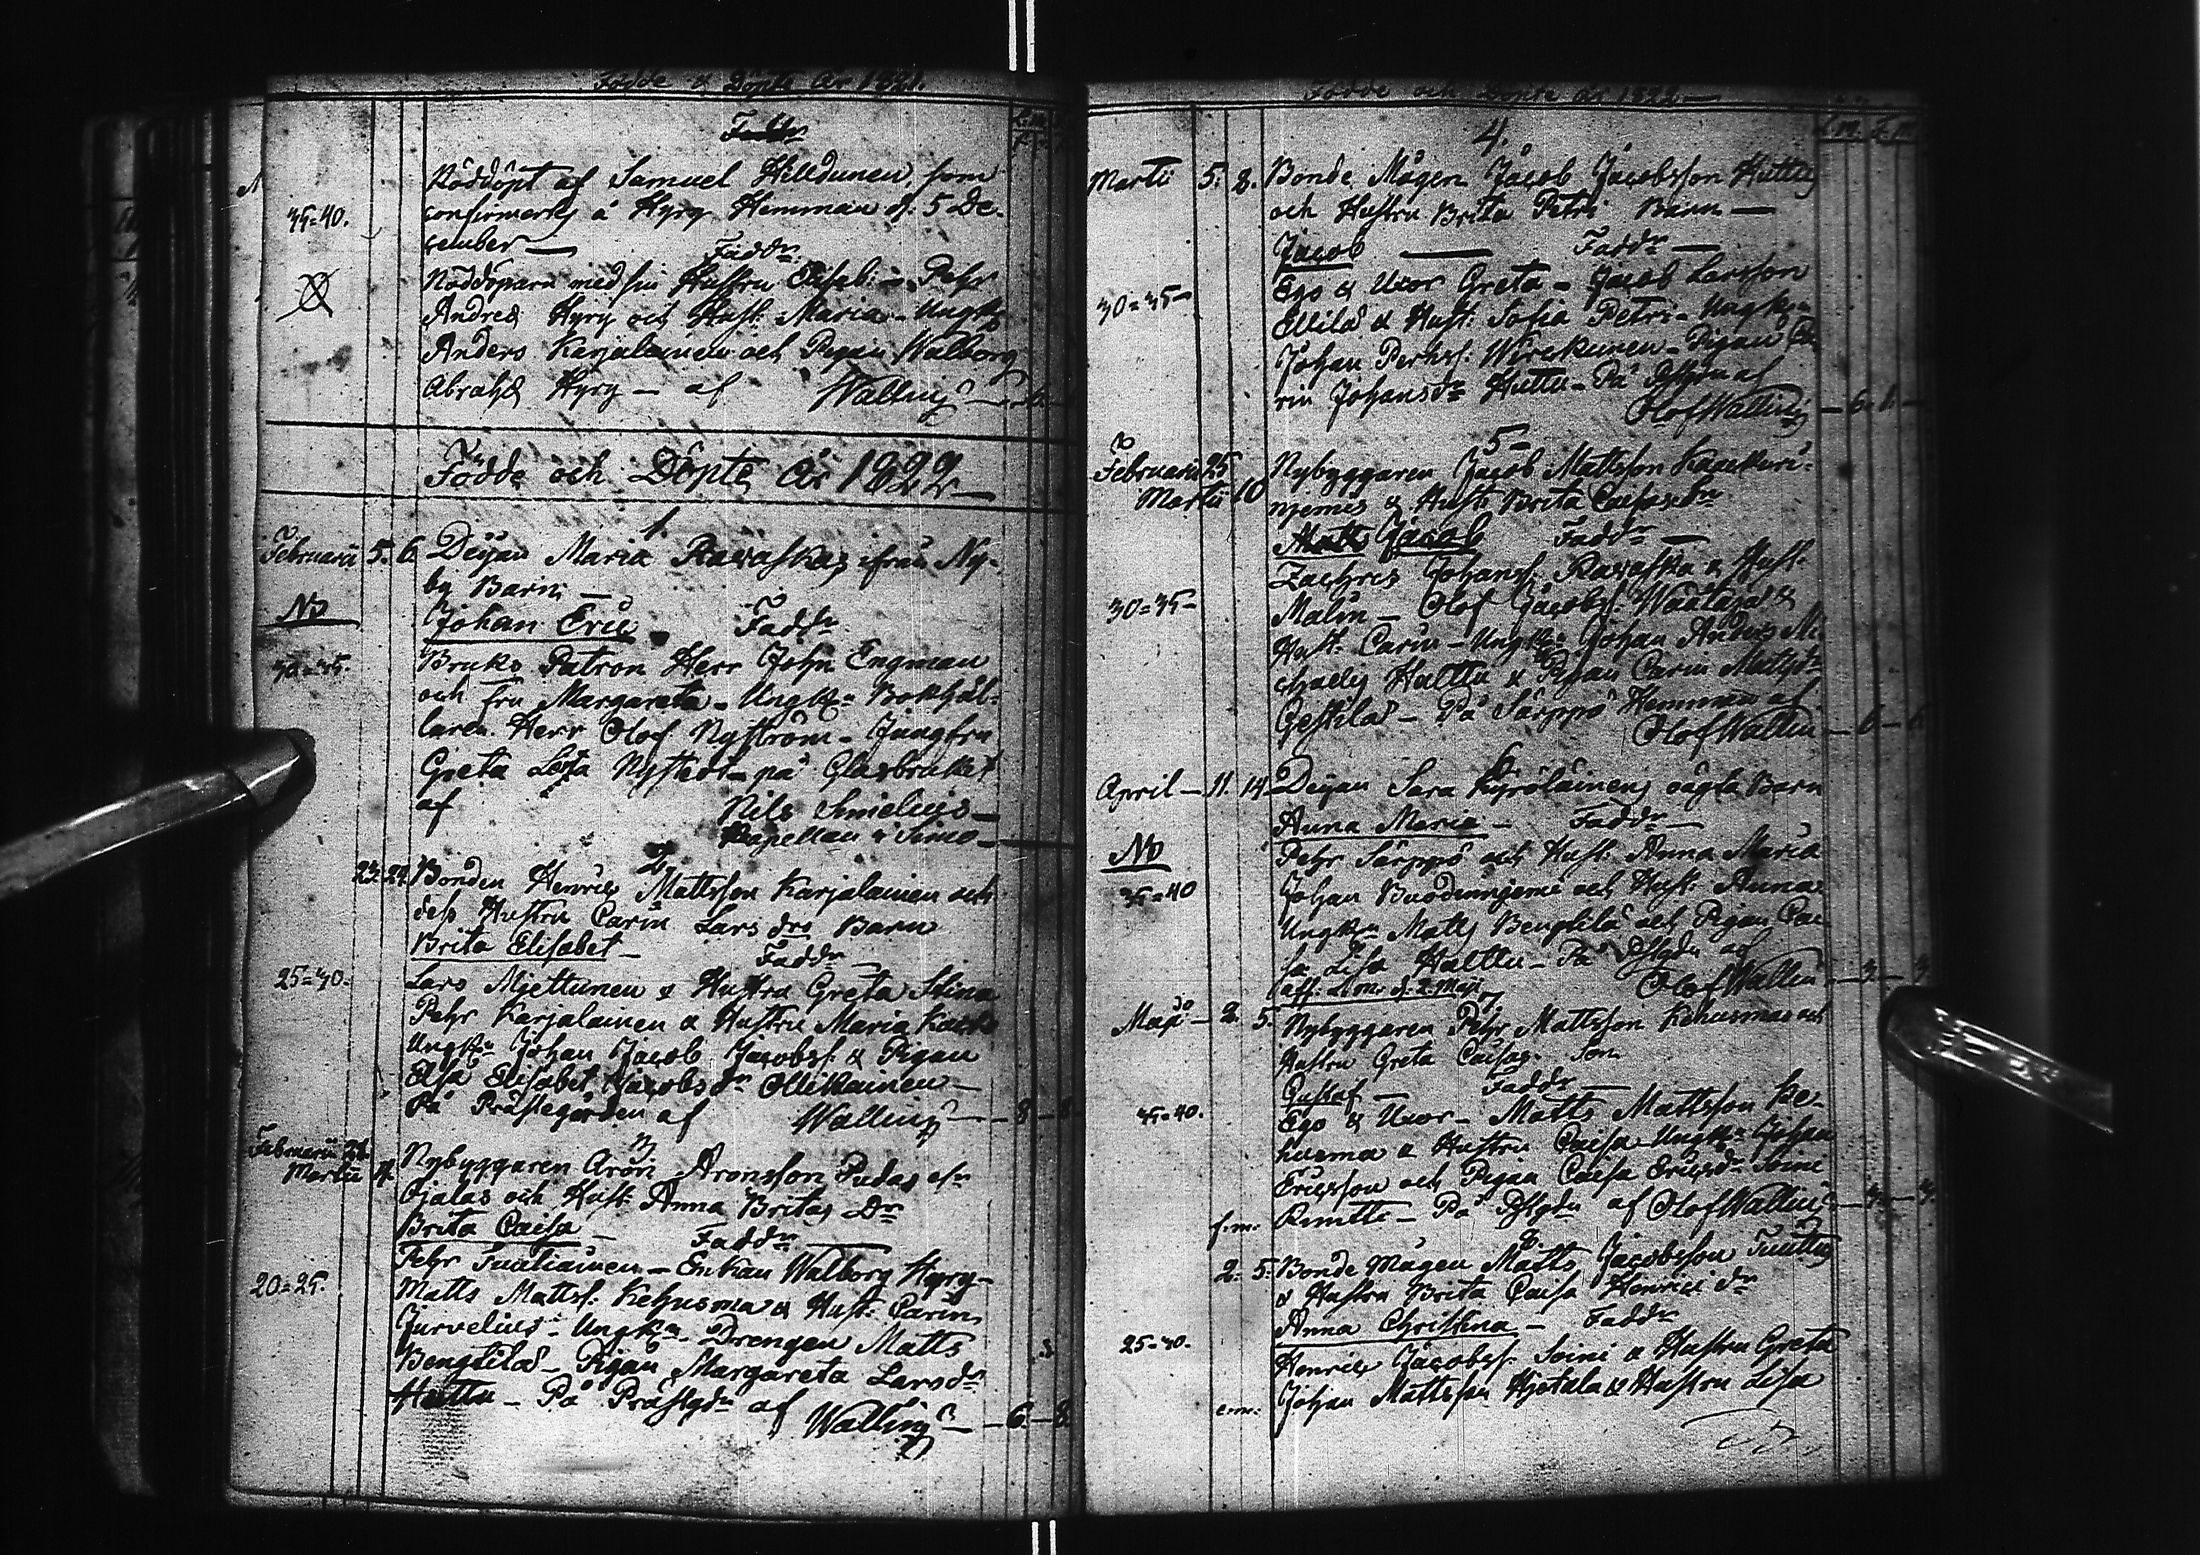 Födde & Döpte År 1821.
Nöddöpt af Samuel Hilldunen, som
35-40. confirmerts å Hyry Hemman d: 5 De-
cember — Fadd:r
Nöddöparn med sin Hustru Elisab: - Pehr
Andreæ Hyry och Hust: Maria - Ungk:n
Anders Karjalainen och Pigan Walborg
Abrahs Hyry — af Wallin
Födde och Döpte år 1822 —
1.
Februarii 5. 6. Deijan Maria Ravaskas ifrån Ny-
by Barn —
No Johan Eric Fadd:r
30-35. Bruks Patron Herr John Engman
och fru Margareta - Ungk:n Bokhål-
laren Herr Olof Nyström - Jungfru
Greta Nystedt - på Glasbruket
af Nils Simelius —
Kapellan i Simo —
2.
23. 24. Bonden Henric Mattsson Karjalainen och
dess Hustru Carin Lars drs Barn
Brita Elisabet — Fadd:r
25-30. Lars Mjettunen & Hustru Greta Stina
Pehr Karjalainen & Hustru Maria
Ungk:n Johan Jacob Jacobss: & Pigan
Elsa Elisabet Jacobs dr Ollikainen —
På Prästegården af Wallin — 8 — 8.
3
Februarii 28. Nybyggaren Aron Aronsson Pudas
Martii Ojalas och Hust: Anna Britas Dr
Brita Caisa — Fadd:r —
Pehr Tuutiainen — Enkan Walborg Hyry —
20-25. Matts Mattss: Kehusmaa & Hust: Carin
Jurvelius - Ungk:n Drengen Matts
Bengtilä — Pigan Margareta Larsdr
Huttu — På Prästgdn af Wallin — 6 — 8.
Födde och Döpte År 1822 —
4.
Martii 5. 8. Bonde Mågen Jacob Jacobsson Huttus
och Hustru Brita Petri Barn —
Jacob — Fadd:r —
30-35 Ego & Uxor Greta - Jacob Larsson
Ellilä & Hust: Sofia Petri - Ungk:n
Johan Perhss: Wirckunen - Pigan Ca
rin Johansdr Huttu - På
Olof Wallin — 6. 1. —
5
Februarii 25 Nybyggaren Jacob Mattsson Kaackuri-
Martii 10 njemis & Hust: Brita Caisas Sn
Matts Jacob Fadd:r —
Zachris Johanss: Ravaska & Hust:
30-35 Malin — Olof Jacobss:
Hust: Carin - Ungk:n Johan Anders Mi
chaelis Huttu & Pigan Carin Mattsdr
Gestilä — På Särppö Hemman af
Olof Wallin — 6 — 6
6
April — 11. 14. Deijan Sara Kyröläinens oägta Barn
Anna Maria — Fadd:r —
No Pehr Särppö och Hust: Anna Maria
35-40 Johan och Hust: Anna
Ungk:n Matts Bengtilä och Pigan Cai
sa Lisa Huttu — På af
Olof Wallin — 3 — 3.
7
Maji — 2. 5. Nybyggaren Pehr Mattsson Kehusmaa och
Hustru Greta Caisas Son
Gustaf — Fadd:r —
35-40. Ego & Uxor — Matts Mattsson Ke-
husma & Hustru Caisa - Ungk:n Johan
Ericsson och Pigan Caisa Ericsdr Soini
f.m. Runtti — På af Olof Wallin — 3 — 3.
8.
2. 5. Bonde Mågen Matts Jacobsson Tuuttis
& Hustru Brita Caisa Henrici dr
Anna Christina — Fadd:r
25-30. Henric Jacobss: Soini & Hustru Greta
e.m. Johan Mattsson Hjetala & Hustru Lisa